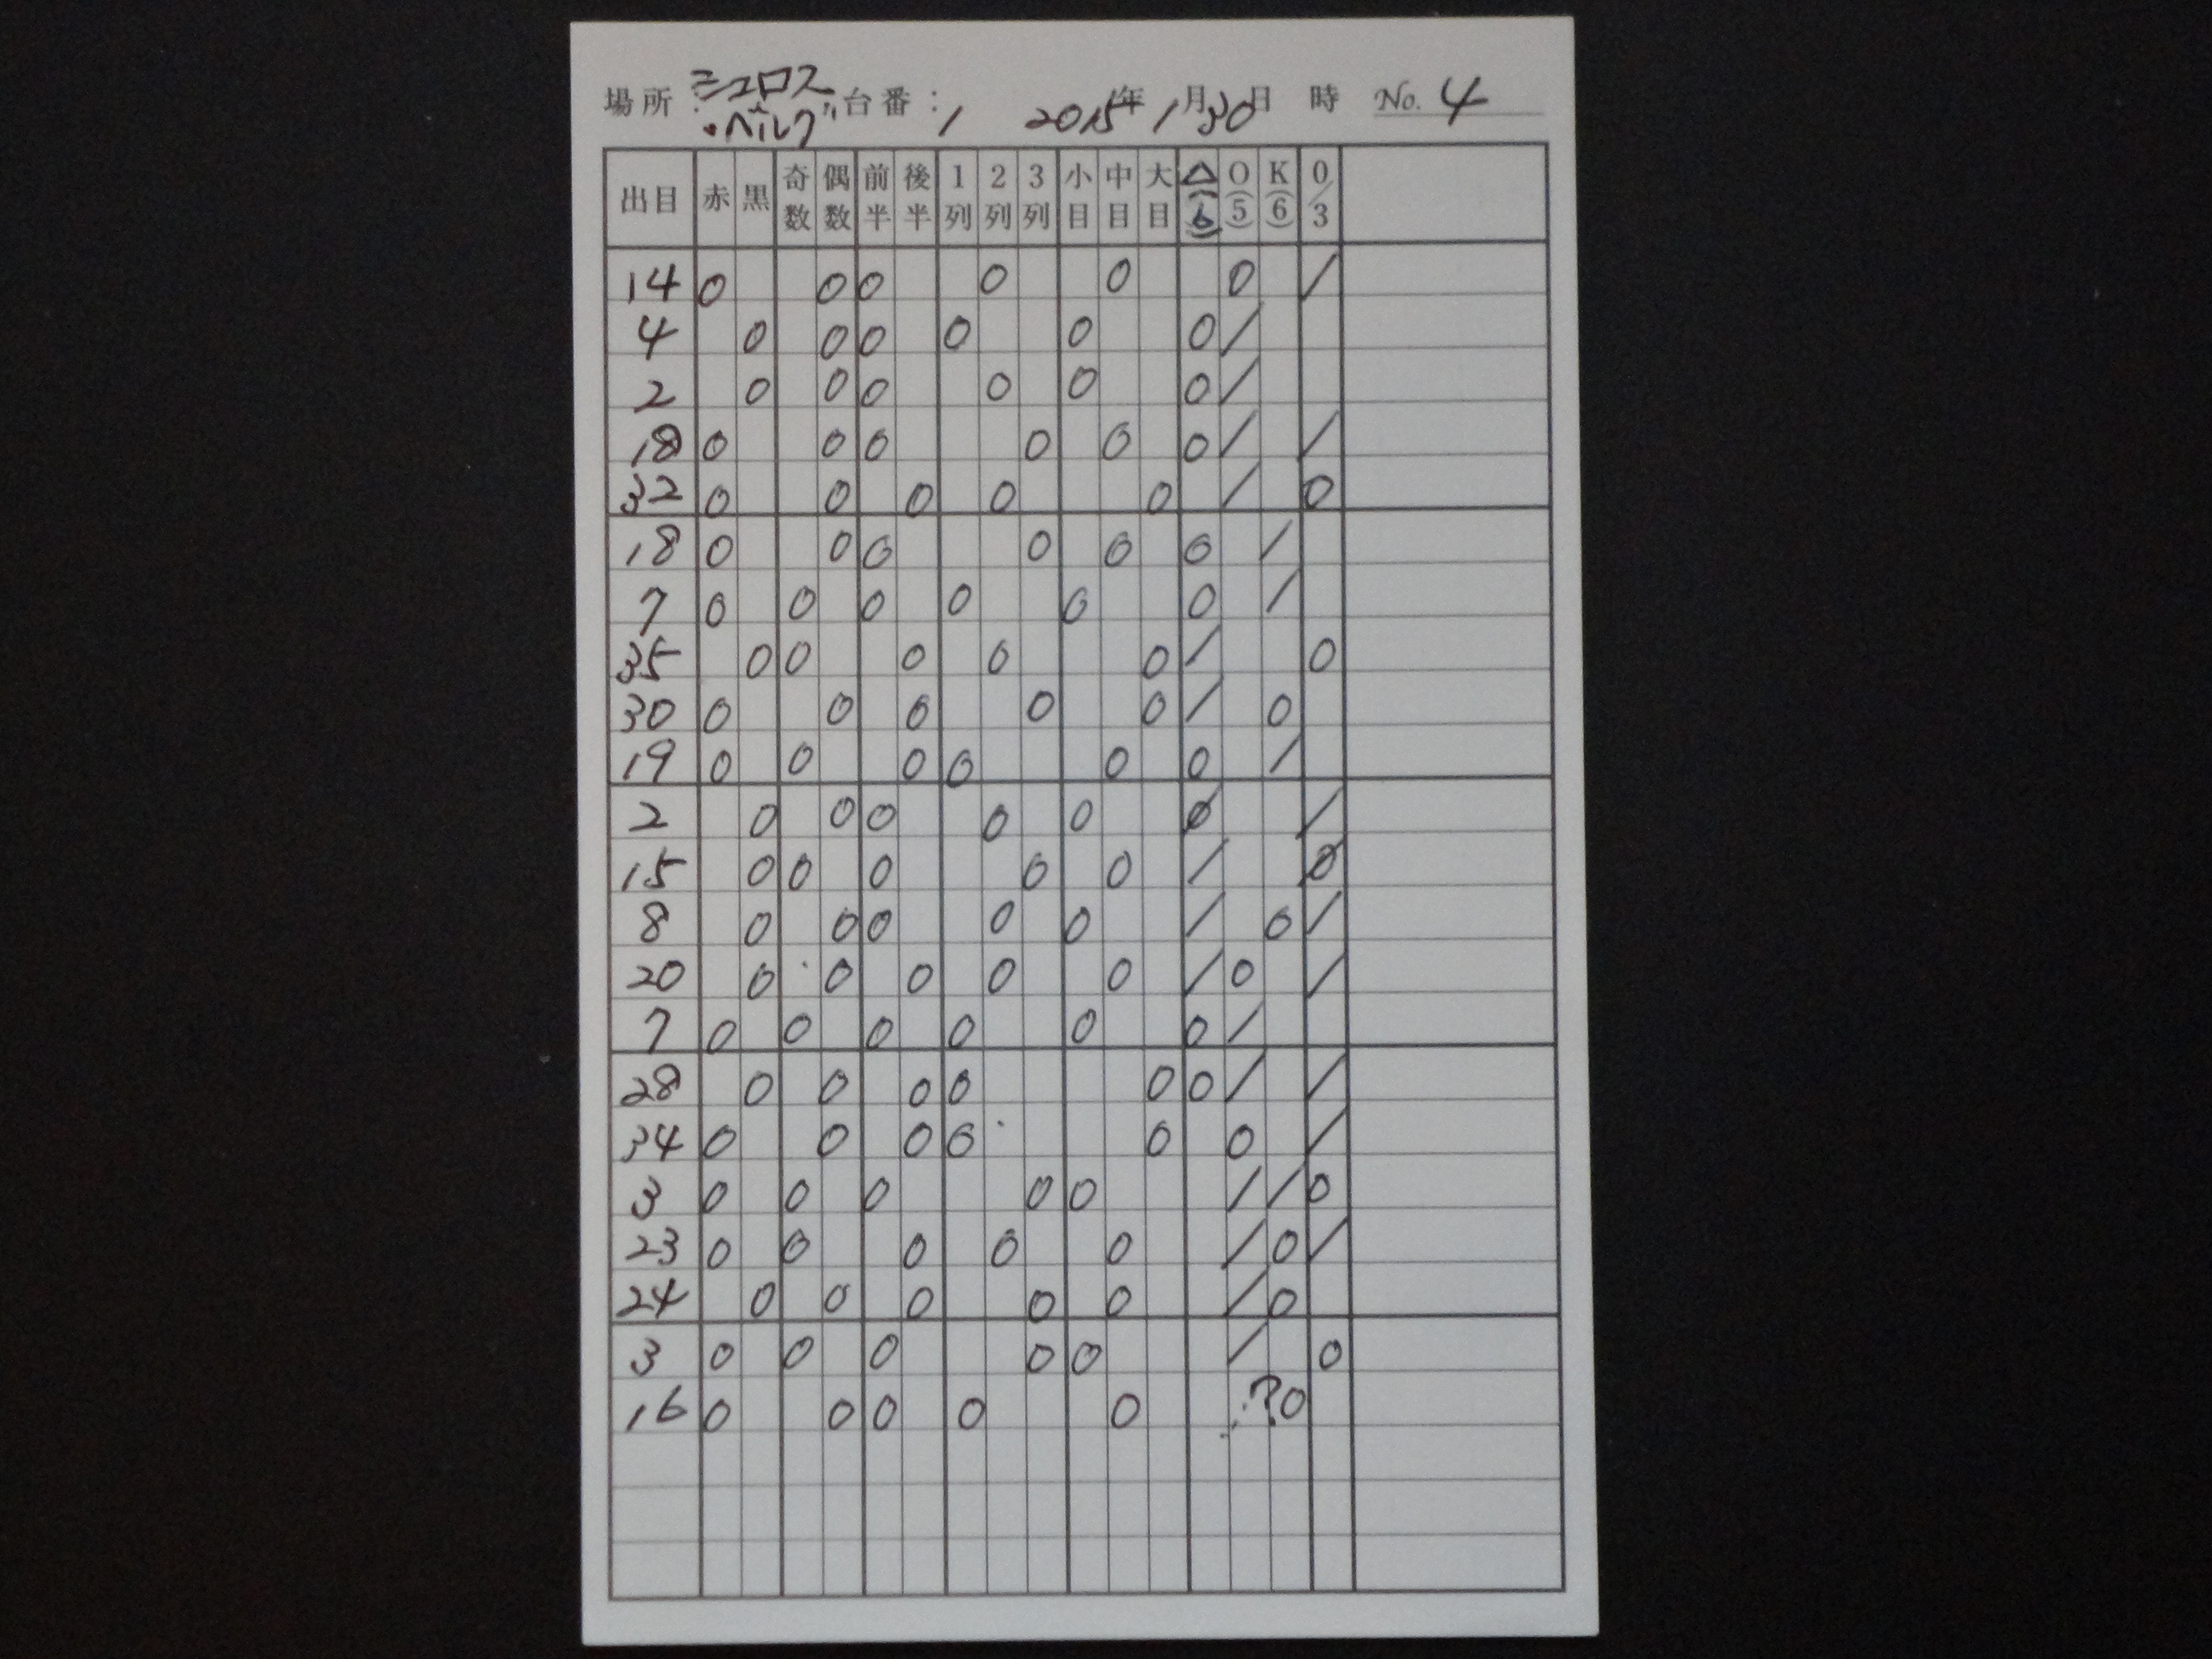 場所: ミュロス
・ベルグ 台番: 1 2015年 1月30日 時 No. 4
出目 赤 黒 奇数 偶数 前半 後半 1列 2列 3列 小目 中目 大目 △(6) O(5) K(6) 0/3
14 0 0 0 0 0 0 /
4 0 0 0 0 0 0 /
2 0 0 0 0 0 0 /
18 0 0 0 0 0 0 / /
32 0 0 0 0 0 / 0
18 0 0 0 0 0 0 /
7 0 0 0 0 0 0 /
35 0 0 0 0 0 / 0
30 0 0 0 0 0 / 0
19 0 0 0 0 0 0 /
2 0 0 0 0 0 Ø /
15 0 0 0 0 0 / Ø
8 0 0 0 0 0 / 0 /
20 0 0 0 0 0 / 0 /
7 0 0 0 0 0 0 /
28 0 0 0 0 0 0 / /
34 0 0 0 0 0 0 /
3 0 0 0 0 0 / / 0
23 0 0 0 0 0 / 0 /
24 0 0 0 0 0 / 0
3 0 0 0 0 0 / 0
16 0 0 0 0 0 ? 0